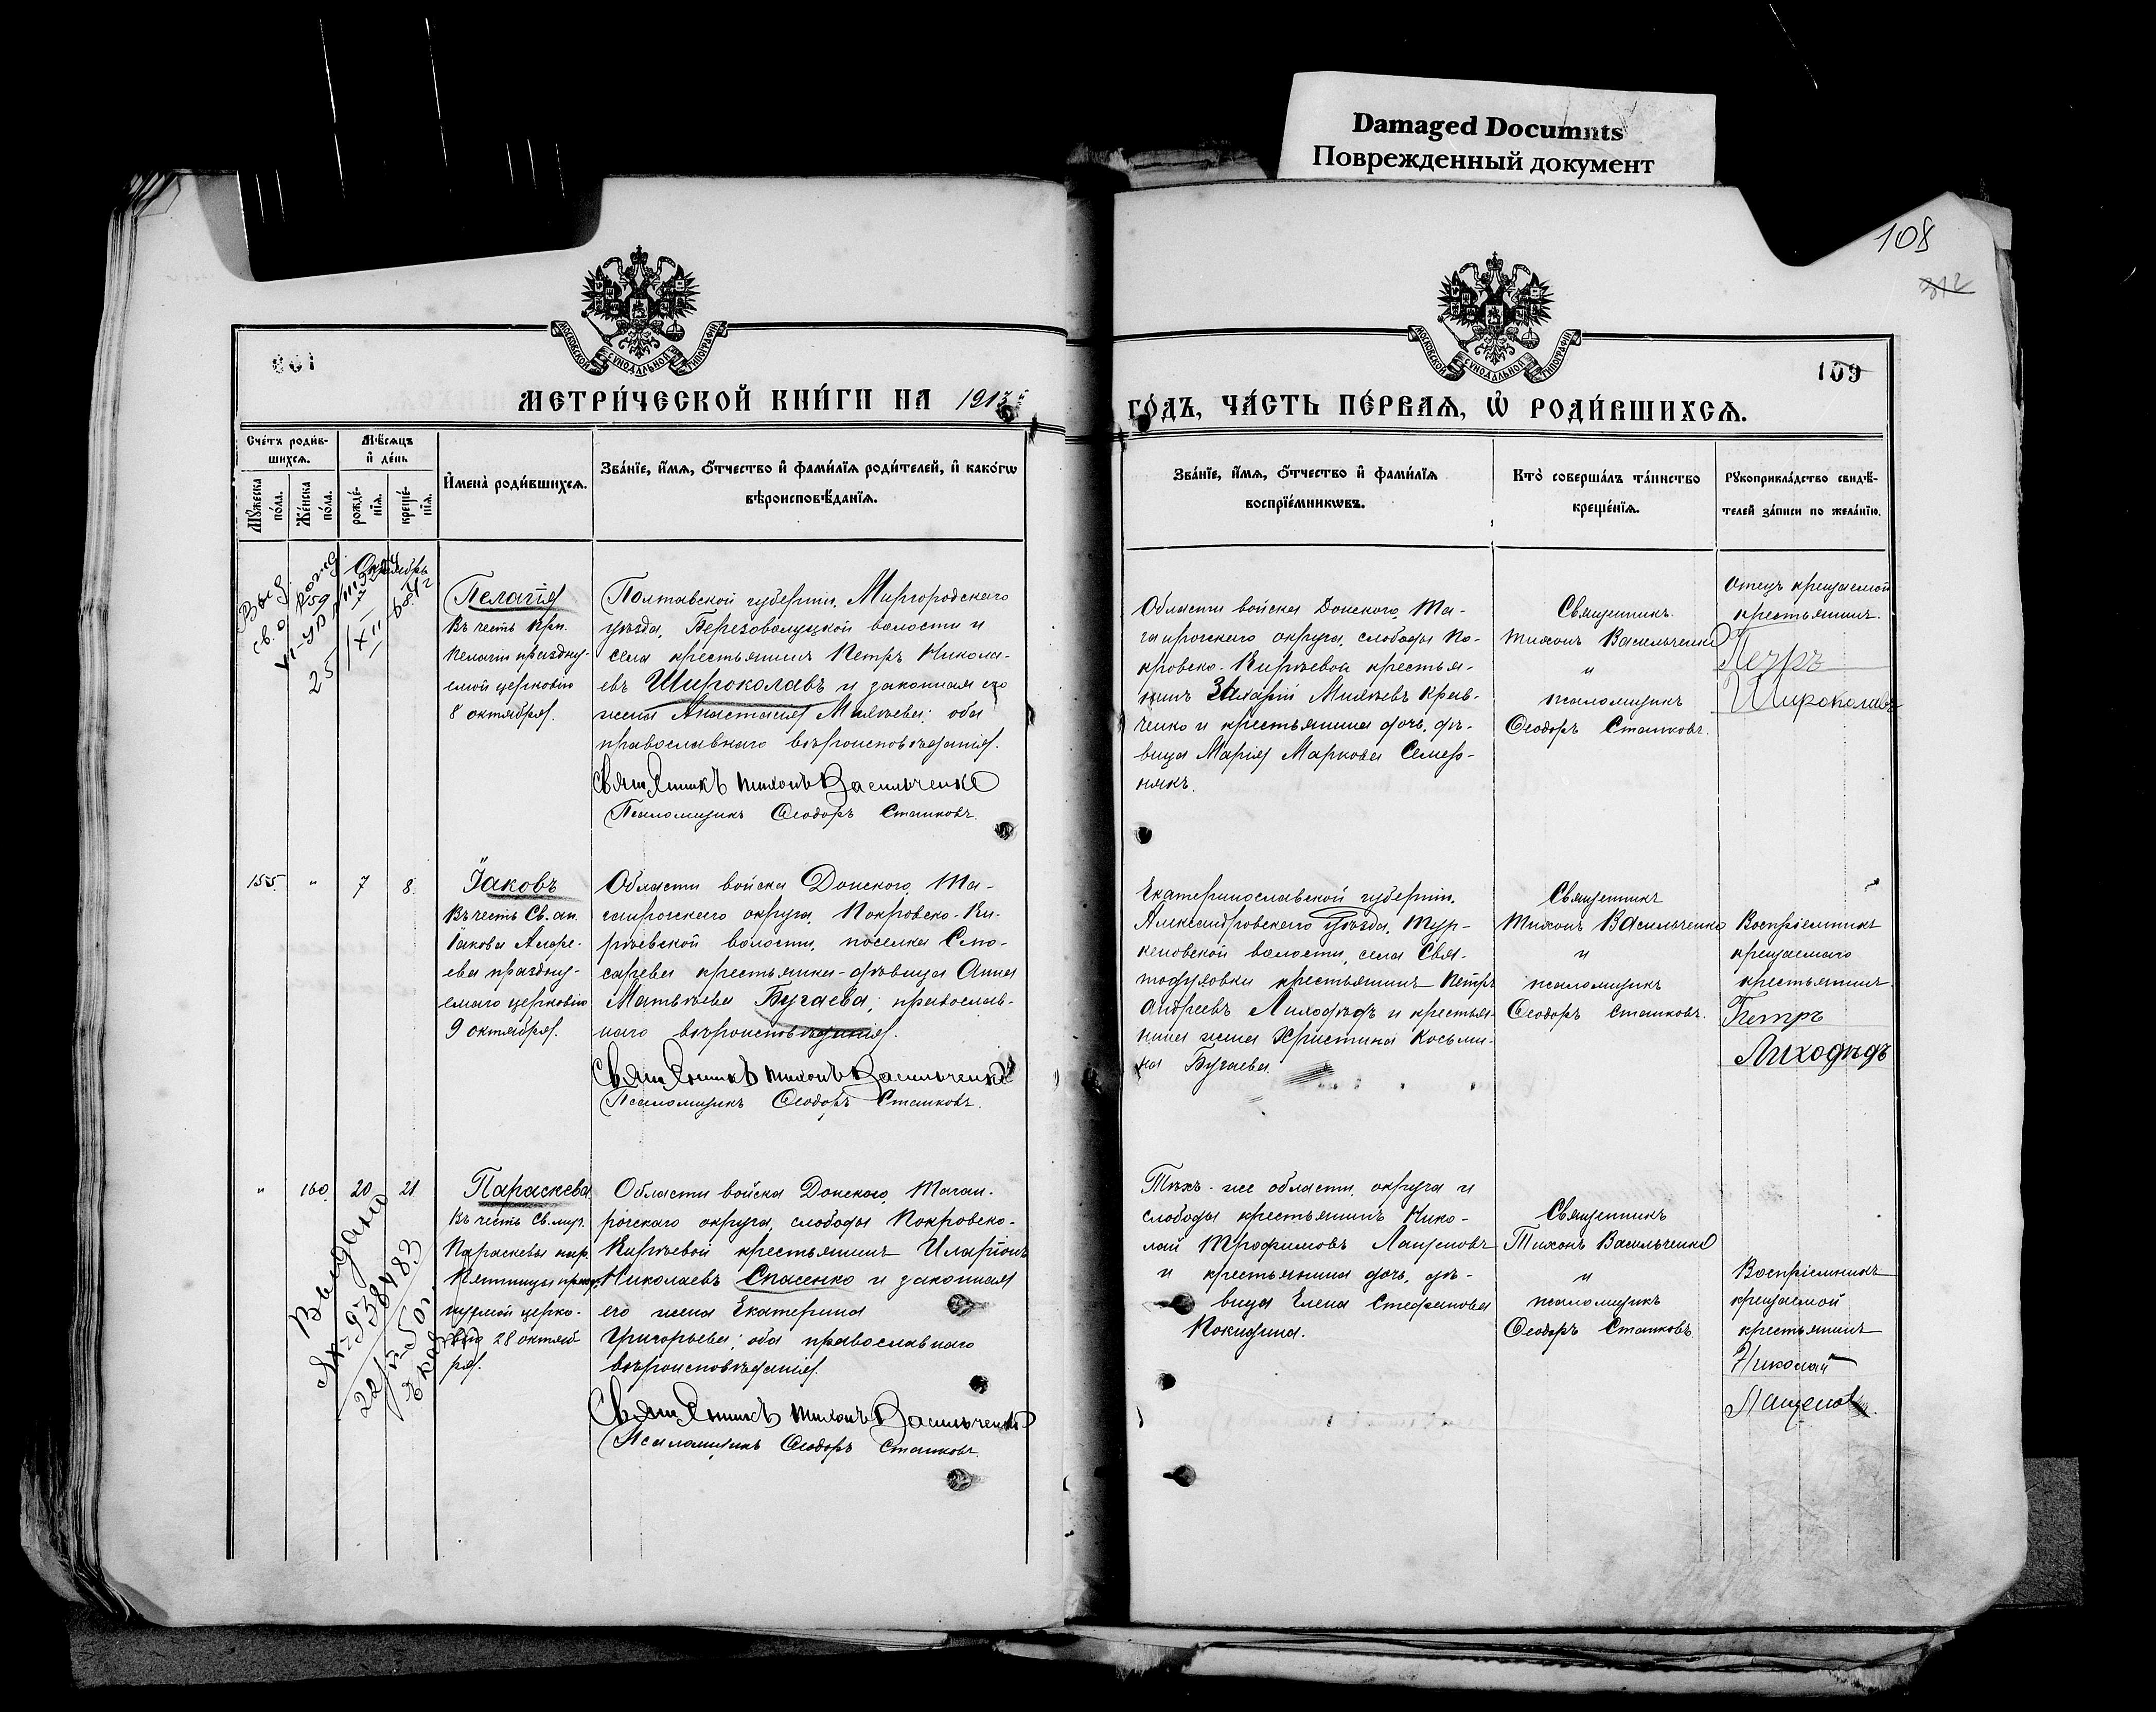 Damaged Documnts
Поврежденный документ
108
312
109
МОСКОВСКОЙ СѴНОДАЛЬНОЙ ТИПОГРАФІИ
МОСКОВСКОЙ СѴНОДАЛЬНОЙ ТИПОГРАФІИ
МЕТРИ́ЧЕСКОЙ КНИ́ГИ НА 1913
ГО́ДЪ, ЧА́СТЬ ПЕ́РВАѦ, Ѡ҆ РОДИ́ВШИХСѦ.
Сче́тъ роди́в-
шихсѧ.
Мѣ́сѧцъ
и҆ де́нь
Мꙋ́жеска
по́ла.
Же́нска
по́ла.
рожде́-
нїѧ.
креще́-
нїѧ.
И҆мена̀ роди́вшихсѧ.
Зва́нїе, и҆́мѧ, ѻ҆́тчество и҆ фами́лїѧ роди́телей, и҆ како́гѡ
вѣроисповѣ́данїѧ.
Зва́нїе, и҆́мѧ, ѻ҆́тчество и҆ фами́лїѧ
воспрїе́мникѡвъ.
Кто̀ соверша́лъ та́инство
креще́нїѧ.
Рꙋкоприкла́дство свидѣ́-
телей за́писи по жела́нїю.
Октябрь
159
Пелагія
Въ честь прп.
Пелагіи праздну-
емой церковію
8 октября.
Полтавской губерніи, Миргородскаго
уѣзда, Березоволуцкой волости и
села крестьянинъ Петръ Никола-
евъ Широколавъ и законная его
жена Анастасія Матвѣева; оба
православнаго вѣроисповѣданія.
Священникъ Тихонъ Васильченко
Псаломщикъ Ѳеодоръ Сташковъ.
Области войска Донского, Та-
ганрогскаго округа, слободы По-
кровско-Кирѣевой крестья-
нинъ Захарій Матвѣевъ Крав-
ченко и крестьянина дочь, дѣ-
вица Марія Маркова Семер-
някъ.
Священникъ
Тихонъ Васильченко
и
псаломщикъ
Ѳеодоръ Сташковъ.
Отецъ крещаемой
крестьянинъ
Петръ
Широколавъ
155. " 7 8.
Іаковъ
Въ честь Св. ап.
Іакова Алфе-
ева праздну-
емаго церковію
9 октября.
Области войска Донского, Та-
ганрогскаго округа, Покровско-Ки-
рѣевской волости, поселка Слю-
сарева крестьянка-дѣвица Анна
Матвѣева Бугаева; православ-
наго вѣроисповѣданія.
Священникъ Тихонъ Васильченко
Псаломщикъ Ѳеодоръ Сташковъ.
Екатеринославской губерніи,
Александровскаго уѣзда, Тур-
кеновской волости, села Свя-
тодуховки крестьянинъ Петръ
Андреевъ Лиходѣдъ и крестья-
нина жена Христина Косьми-
на Бугаева.
Священникъ
Тихонъ Васильченко
и
псаломщикъ
Ѳеодоръ Сташковъ.
Воспріемникъ
крещаемаго
крестьянинъ
Петръ
Лиходѣдъ
" 160. 20 21
Выдано
Параскева
Въ честь Св. муч.
Параскевы нар.
Пятницы
церко-
вію 28 октяб-
ря.
Области войска Донского, Таган-
рогскаго округа, слободы Покровско-
Кирѣевой крестьянинъ Иларіонъ
Николаевъ Спасенко и законная
его жена Екатерина
Григорьева; оба православнаго
вѣроисповѣданія.
Священникъ Тихонъ Васильченко
Псаломщикъ Ѳеодоръ Сташковъ.
Тѣхъ-же области, округа и
слободы крестьянинъ Нико-
лай Трофимовъ Лащеновъ
и крестьянина дочь, дѣ-
вица Елена Стефанова
Покидина.
Священникъ
Тихонъ Васильченко
и
псаломщикъ
Ѳеодоръ Сташковъ
Воспріемникъ
крещаемой
крестьянинъ
Николай
Лащенов